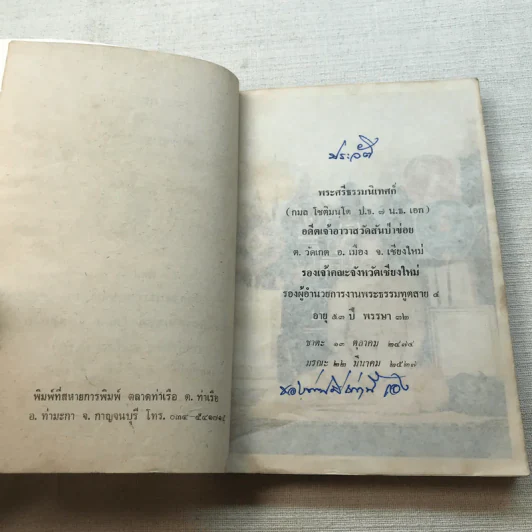 พิมพ์ที่สหายการพิมพ์ ตลาดท่าเรือ ต. ท่าเรือ
อ. ท่ามะกา จ. กาญจนบุรี โทร.
ประวัติ
พระศรีธรรมนิเทศก์
(กมล โชติมนฺโต ป.ธ. ๗ น.ธ. เอก)
อดีตเจ้าอาวาสวัดสันป่าข่อย
ต. วัดเกต อ. เมือง จ. เชียงใหม่
รองเจ้าคณะจังหวัดเชียงใหม่
รองผู้อำนวยการงานพระธรรมทูตสาย ๔
อายุ ๕๓ ปี พรรษา ๓๒
ชาตะ ๑๓ ตุลาคม ๒๔๗๔
มรณะ ๒๒ มีนาคม ๒๕๒๗